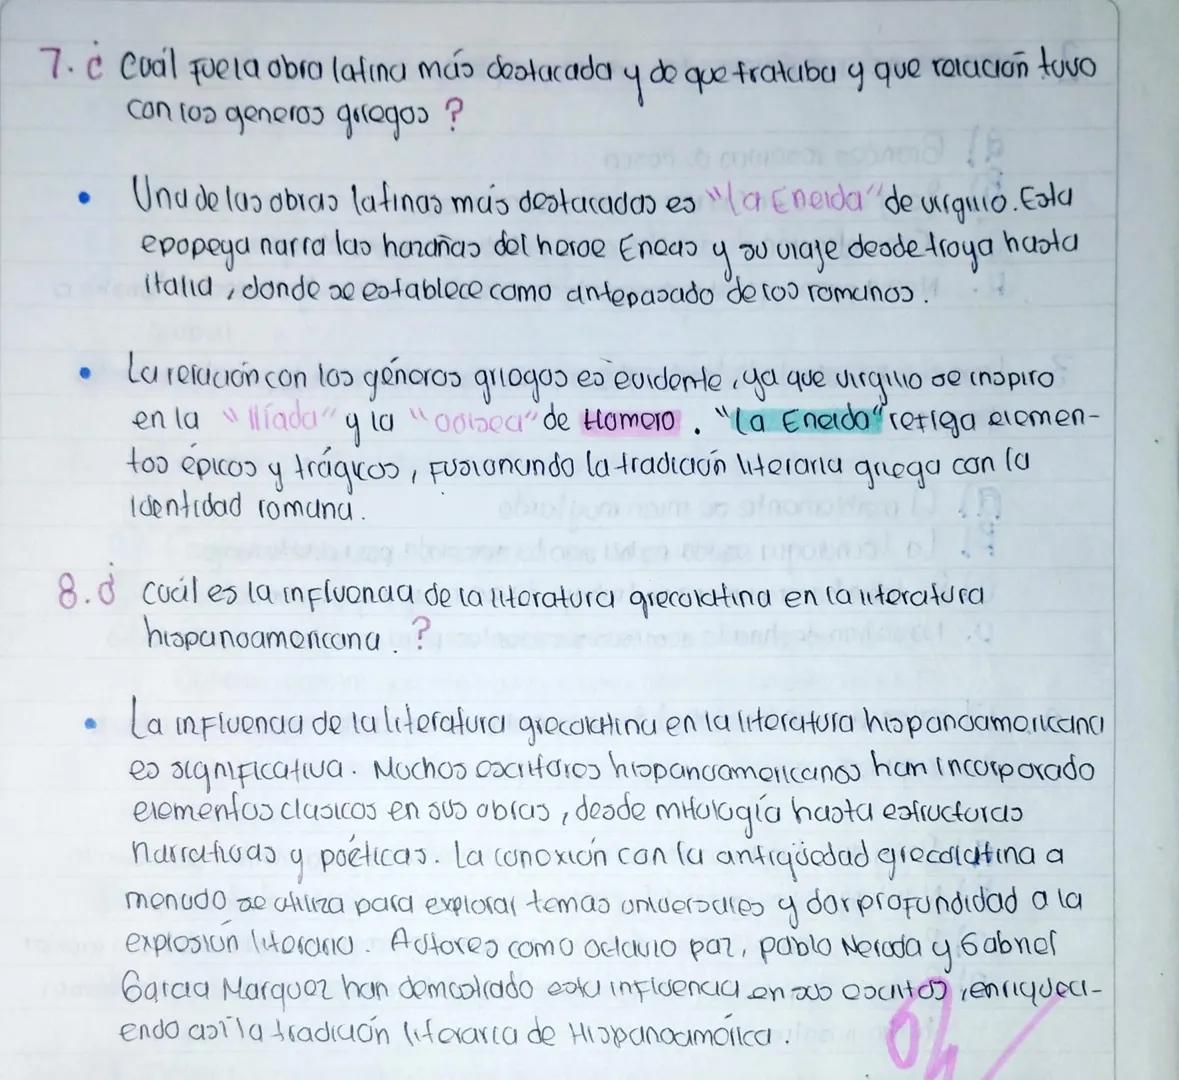 7. ¿ Cuál fue la obra latina más destacada y de que trataba y que relación tuvo
con los generos griegos ?
• Una de las obras latinas más destacadas es "la Eneida" de virgilio. Esta
epopeya narra las hazañas del heroe Eneas y su viaje desde troya hasta
italia, donde se establece como antepasado de los romanos.
• La relación con los géneros griegos es evidente, ya que virgilio se inspiro
en la "Ilíada" y la "odisea" de Homero. "La Eneida" refleja elemen-
tos épicos y trágicos, fusionando la tradición literaria griega con la
identidad romana.
8. ¿ Cuál es la influencia de la literatura grecolatina en la literatura
hispanoamericana. ?
• La influencia de la literatura grecolatina en la literatura hispanoamericana
es significativa. Muchos escritores hispanoamericanos han incorporado
elementos clasicos en sus obras, desde mitología hasta estructuras
narrativas y poéticas. La conexión con la antigüedad grecolatina a
menudo se utiliza para explorar temas universales y dar profundidad a la
explosión literaria. Autores como octavio paz, pablo Neruda y Gabriel
Garcia Marquez han demostrado esta influencia en sus escritos, enriqueci-
endo así la tradición literaria de Hispanoamérica.